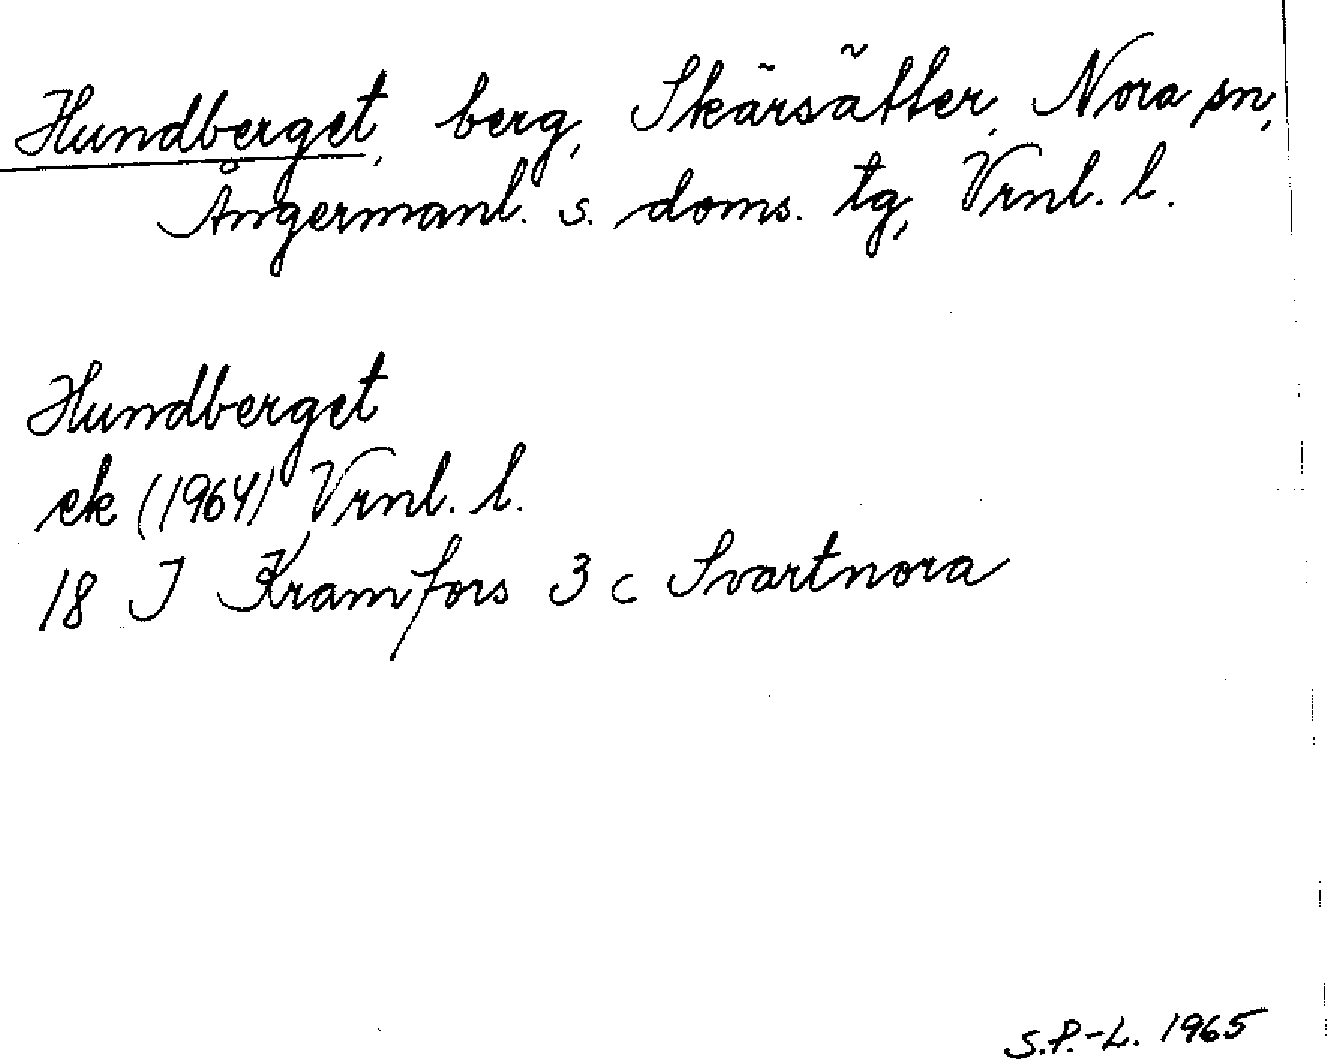 Hundberget, berg, Skärsätter, Nora sn,
Ångermanl. s. doms. tg, Vrnl. l.
Hundberget
ek (1964) Vrnl. l.
18 J Kramfors 3 c Svartnora
S.P.-L. 1965